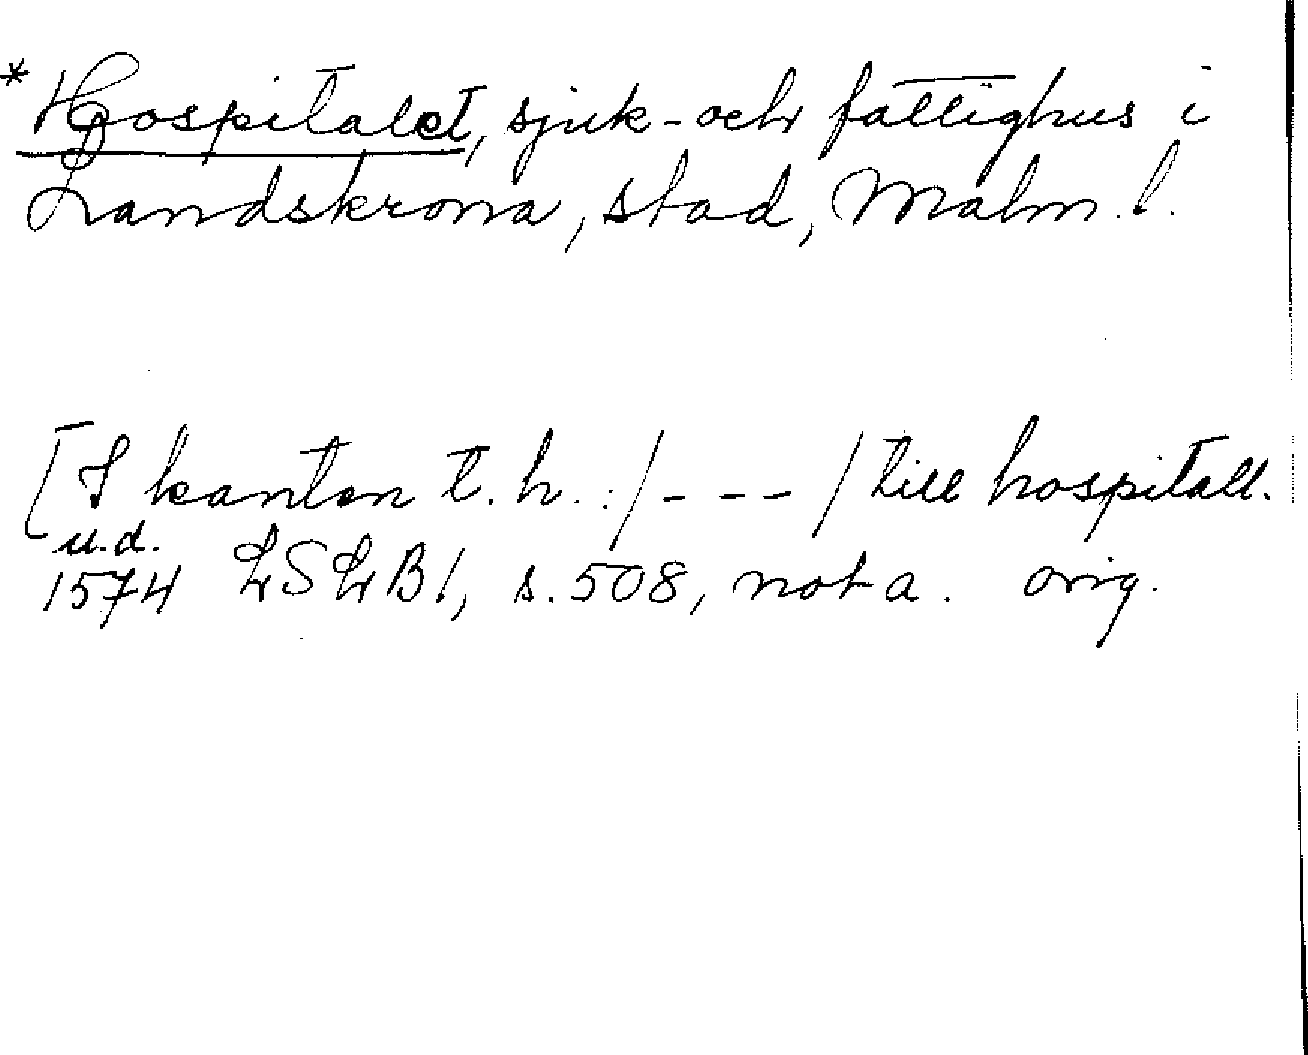 *Hospitalet, sjuk- och fattighus i
Landskrona, stad, Malm. l.
[I kanten t. h.: / - - - / till hospitall.
u.d.
1574 LSLB1, s. 508, not a. orig.